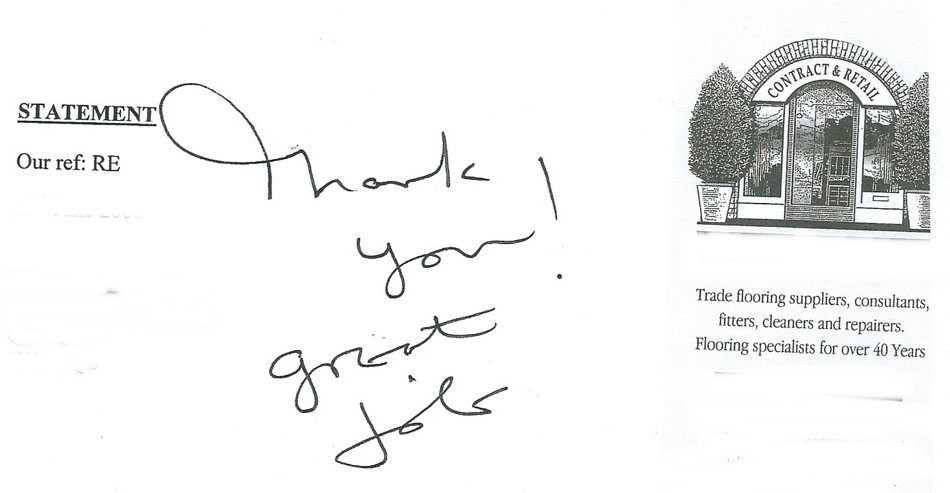 STATEMENT
Our ref: RE
Thank
you!
great
job
CONTRACT & RETAIL
Trade flooring suppliers, consultants,
fitters, cleaners and repairers.
Flooring specialists for over 40 Years